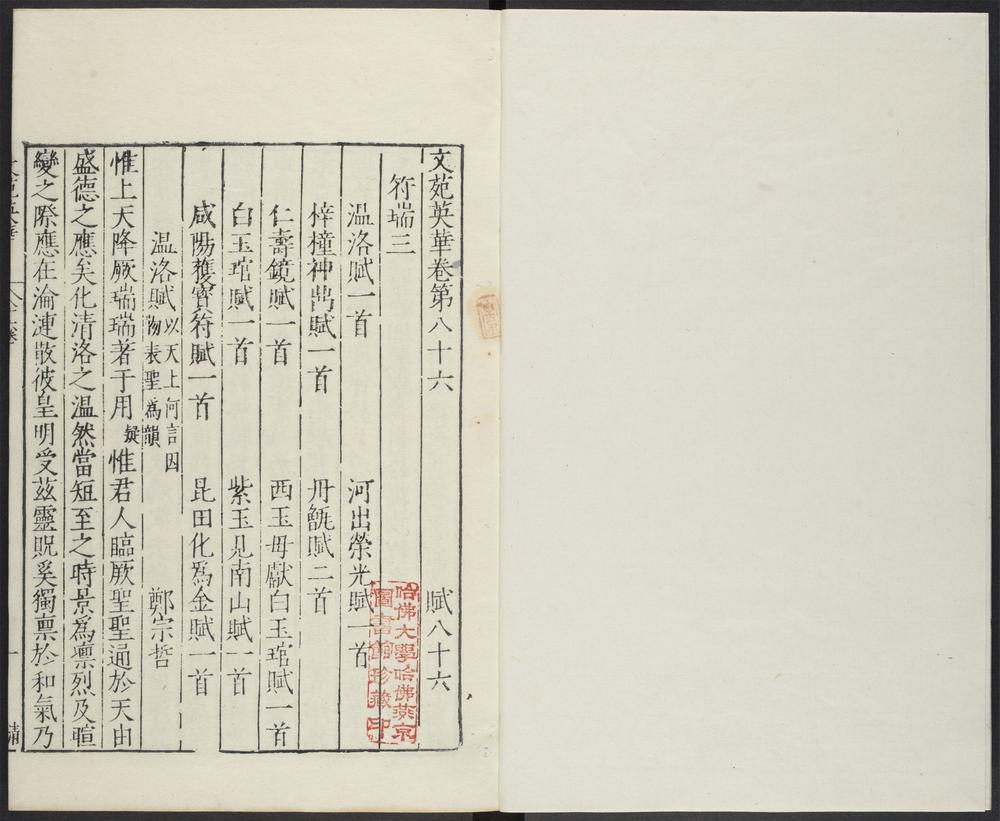 文苑英華卷第八十六
賦八十六
符瑞三
温洛賦一首
河出榮光賦一首
梓橦神鼎賦一首
丹甑賦二首
仁壽鏡賦一首
西王母獻白玉琯賦一首
白玉琯賦一首
紫玉見南山賦一首
咸陽獲寳符賦一首
昆田化爲金賦一首
温洛賦
以天上何言因
物表聖爲韻
鄭宗哲
惟上天降厥瑞瑞著于用疑惟君人臨厥聖聖通於天由
盛德之應矣化清洛之温然當短至之時景爲凛烈及暄
變之際應在淪漣散彼皇明受兹靈貺奚獨禀於和氣乃
哈佛大學哈佛燕京
圖書館珍藏印